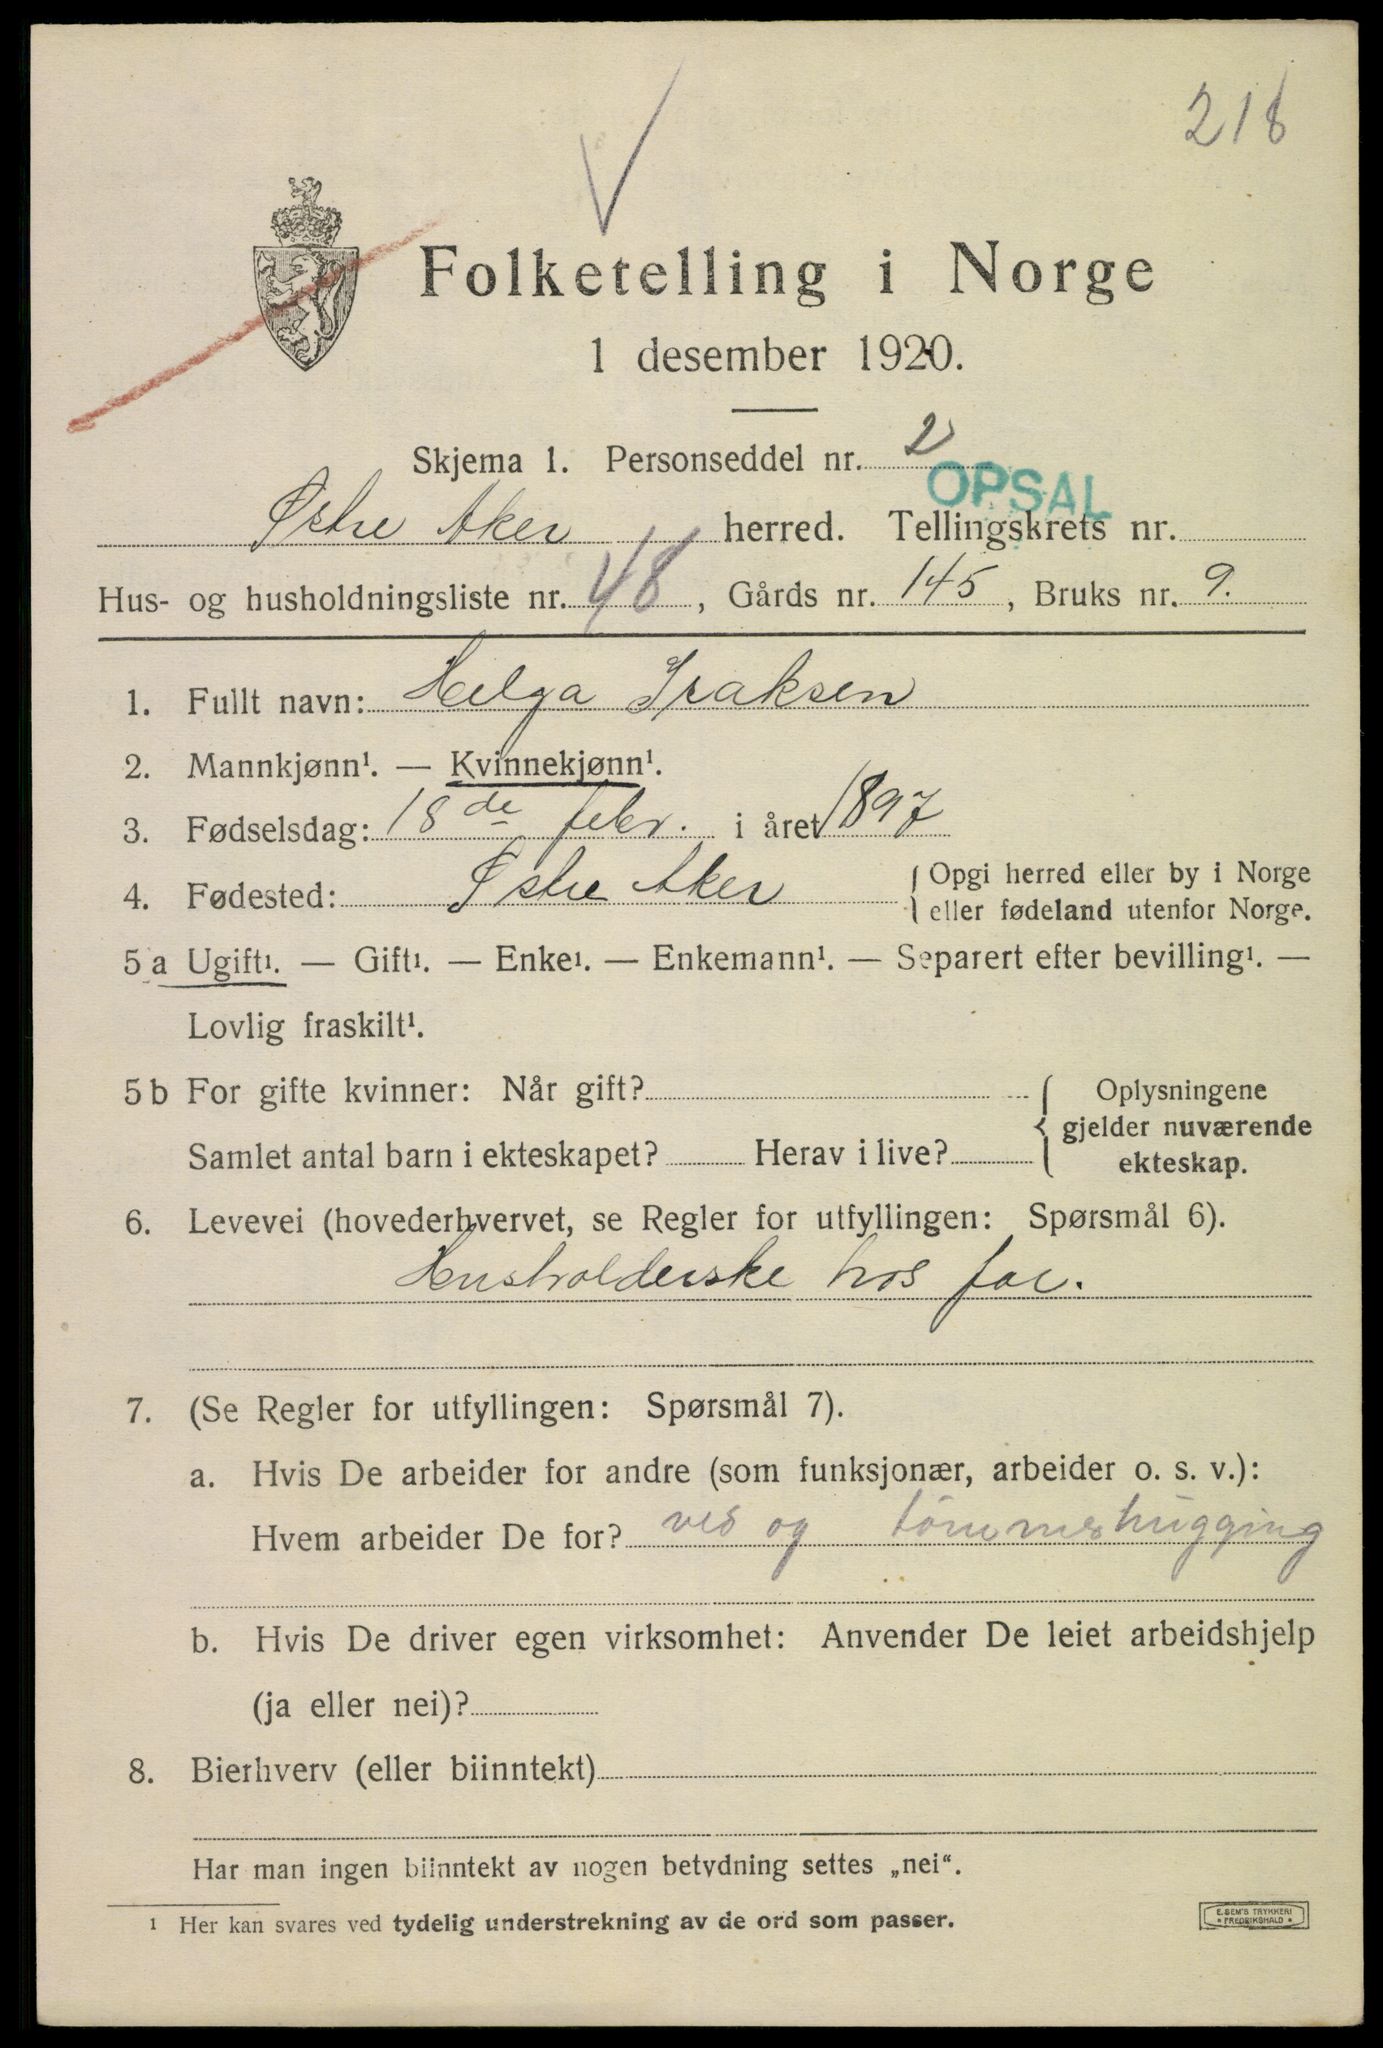 218
Folketelling i Norge
1 desember 1920.
Skjema 1. Personseddel nr. 2
OPSAL
Østre Aker herred. Tellingskrets nr.
Hus- og husholdningsliste nr. 48, Gårds nr. 145, Bruks nr. 9.
1. Fullt navn: Helga Iraksen
2. Mannkjønn¹. — Kvinnekjønn¹.
3. Fødselsdag: 18de febr. i året 1897
4. Fødested: Østre Aker { Opgi herred eller by i Norge
eller fødeland utenfor Norge.
5 a Ugift¹. — Gift¹. — Enke¹. — Enkemann¹. — Separert efter bevilling¹. —
Lovlig fraskilt¹.
5 b For gifte kvinner: Når gift? { Oplysningene
gjelder nuværende
Samlet antal barn i ekteskapet? Herav i live? ekteskap.
6. Levevei (hovederhvervet, se Regler for utfyllingen: Spørsmål 6).
Husholderske hos far.
7. (Se Regler for utfyllingen: Spørsmål 7).
a. Hvis De arbeider for andre (som funksjonær, arbeider o. s. v.):
Hvem arbeider De for? ved og tømmerhugging
b. Hvis De driver egen virksomhet: Anvender De leiet arbeidshjelp
(ja eller nei)?
8. Bierhverv (eller biinntekt)
Har man ingen biinntekt av nogen betydning settes „nei“.
¹ Her kan svares ved tydelig understrekning av de ord som passer.
E. SEM'S TRYKKERI
• FREDRIKSHALD •